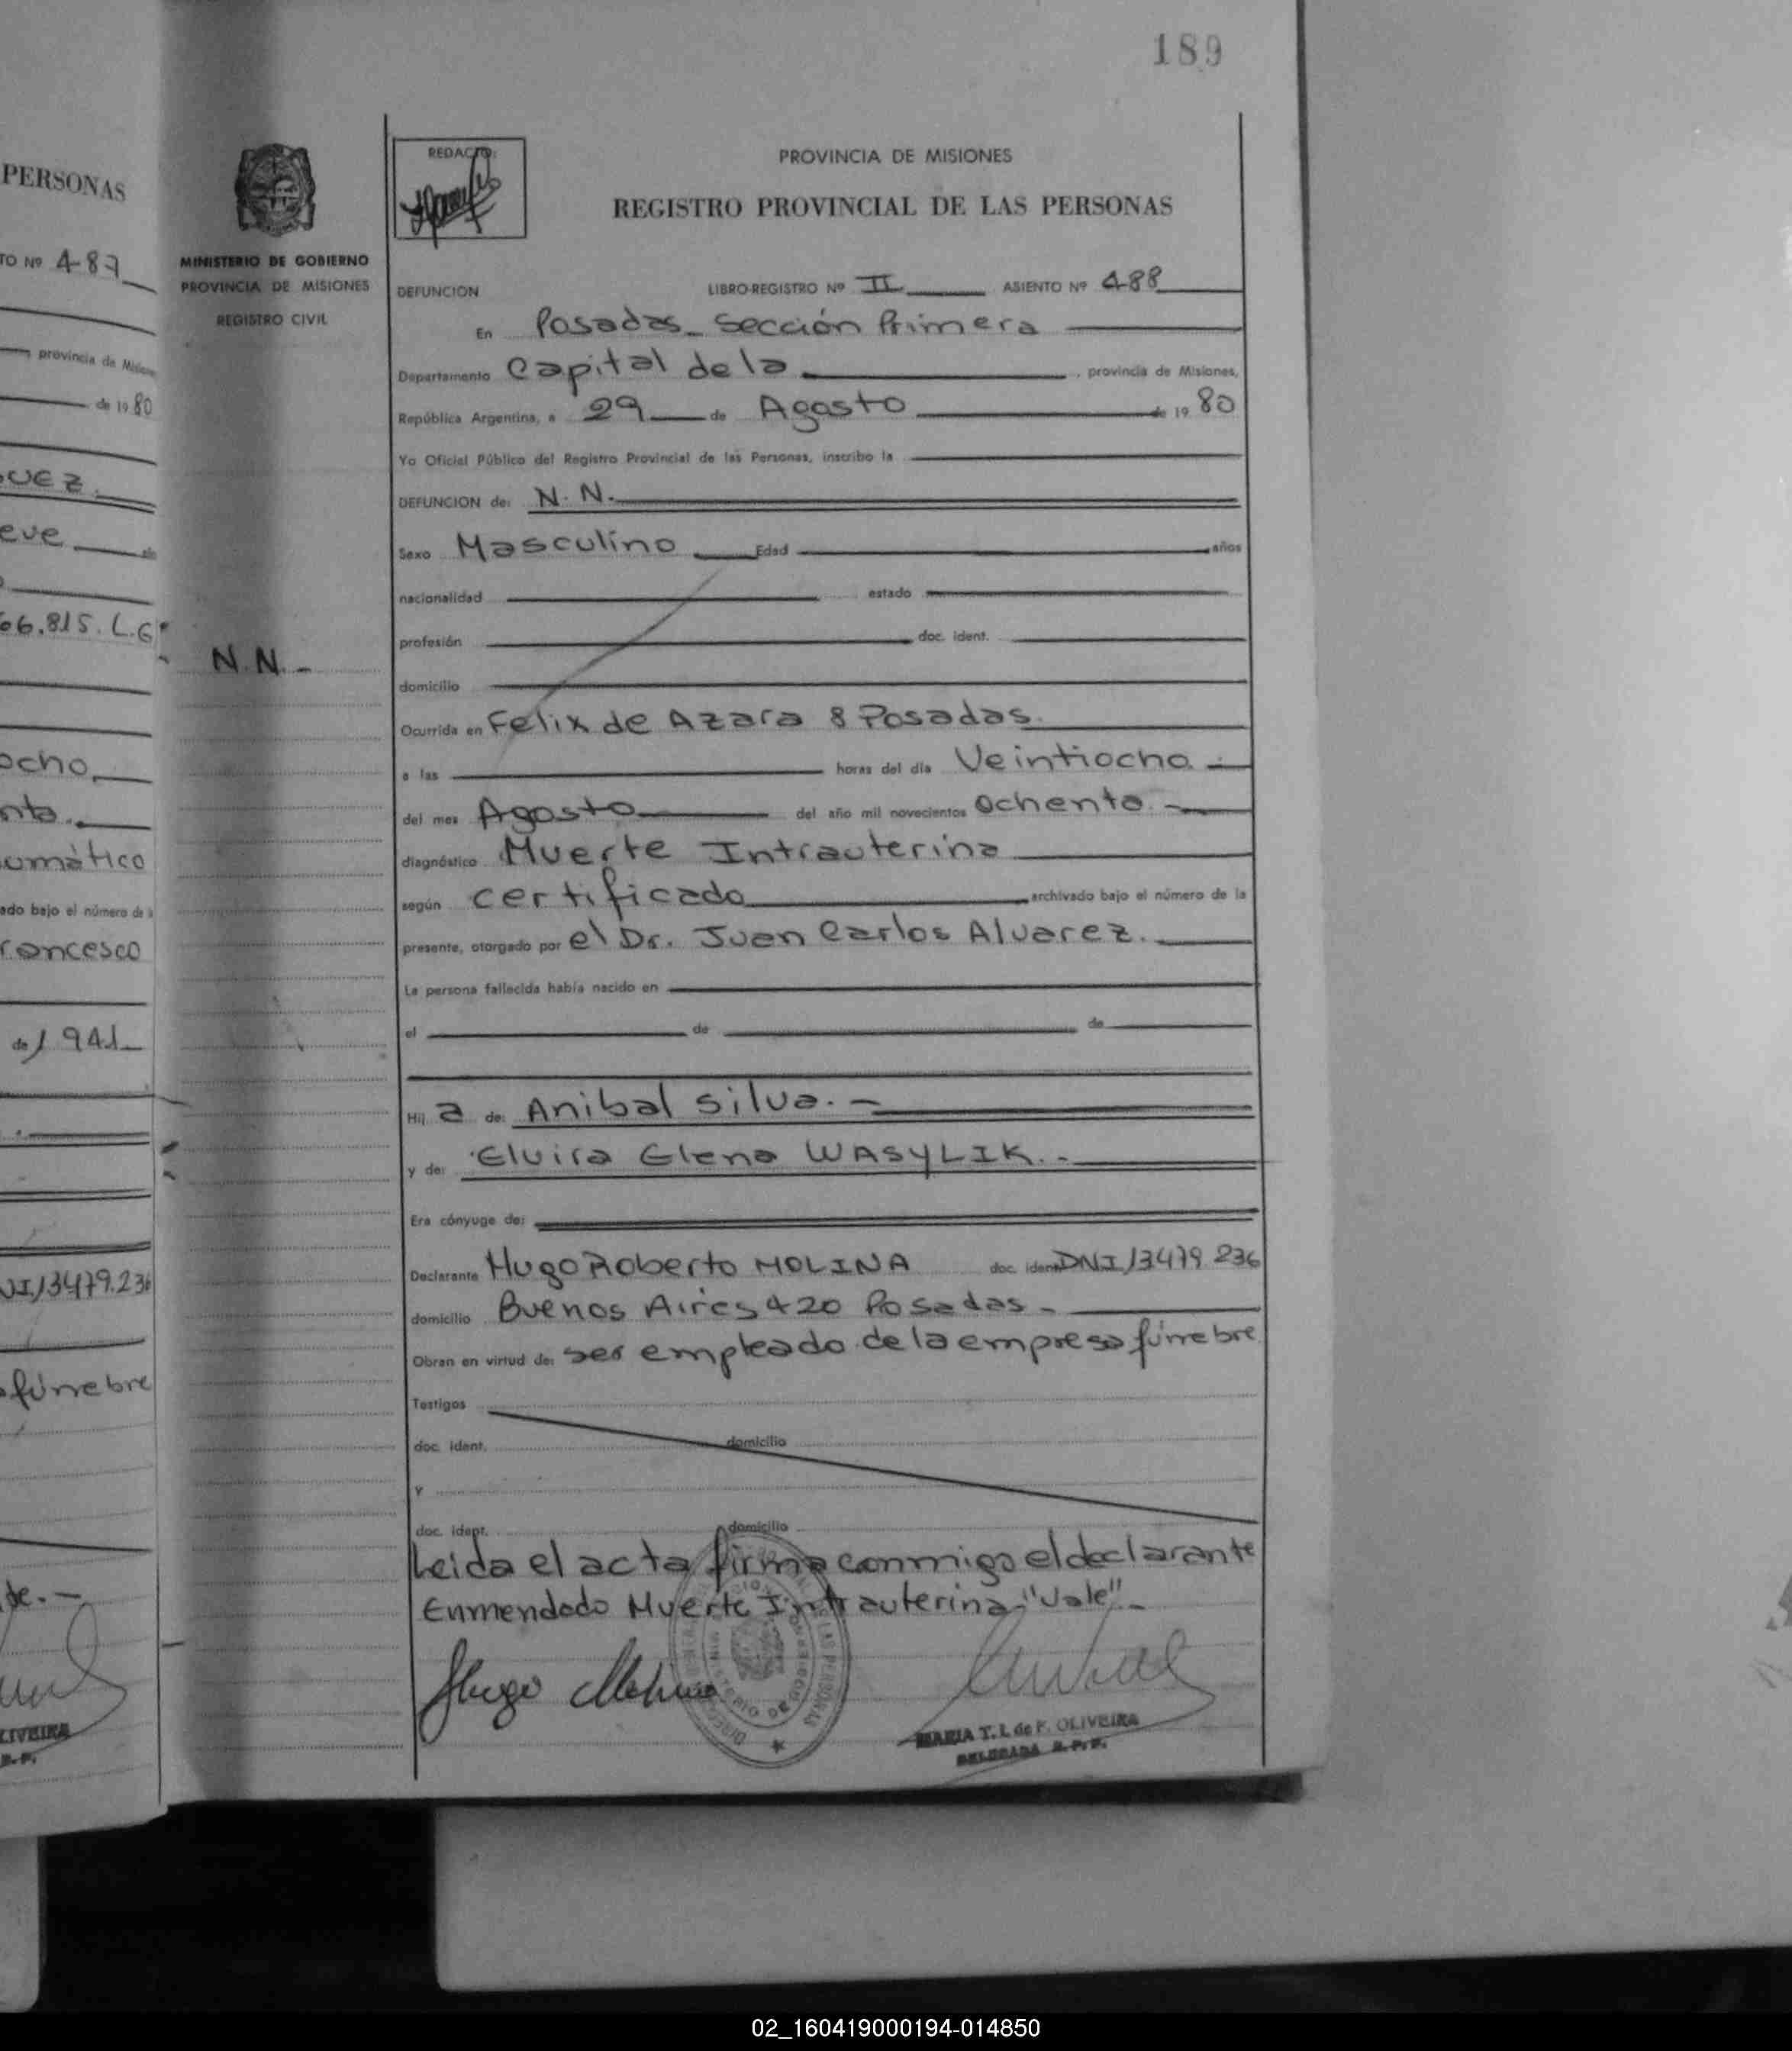 189
PERSONAS
TO Nº 487
provincia de Misiones
de 19 80
UEZ.
eve
66.815. L.C
ocho
nta.
umático
ado bajo el número de la
rancesco
de 1941
NI 13479.236
fúnebre
de. -
LIVEIRA
R. P.
MINISTERIO DE GOBIERNO
PROVINCIA DE MISIONES
REGISTRO CIVIL
N.N.-
REDACTO:
PROVINCIA DE MISIONES
REGISTRO PROVINCIAL DE LAS PERSONAS
DEFUNCION LIBRO-REGISTRO Nº II ASIENTO Nº 488
En Posadas_ Sección Primera
Departamento Capital de la , provincia de Misiones,
República Argentina, a 29 de Agosto de 19 80
Yo Oficial Público del Registro Provincial de las Personas, inscribo la
DEFUNCION de: N. N.
Sexo Masculino Edad años
nacionalidad estado
profesión doc. ident.
domicilio
Ocurrida en Felix de Azara 8 Posadas.
a las horas del día Veintiocho. -
del mes Agosto del año mil novecientos Ochenta. -
diagnóstico Muerte Intrauterina
según certificado archivado bajo el número de la
presente, otorgado por el Dr. Juan Carlos Alvarez.
La persona fallecida había nacido en
el de de
Hij a de: Anibal Silva. -
y de: Elvira Elena WASYLIK. -
Era cónyuge de:
Declarante Hugo Roberto MOLINA doc. ident. DNI 13479 236
domicilio Buenos Aires 420 Posadas -
Obran en virtud de: ser empleado de la empresa fúnebre
Testigos
doc. ident. domicilio
Y
doc. ident. domicilio
Leida el acta firma conmigo el declarante
Enmendado Muerte Intrauterina "Vale" -
Hugo Molina
MARIA T. I. de F. OLIVEIRA
DELEGADA R. P. P.
02_160419000194-014850